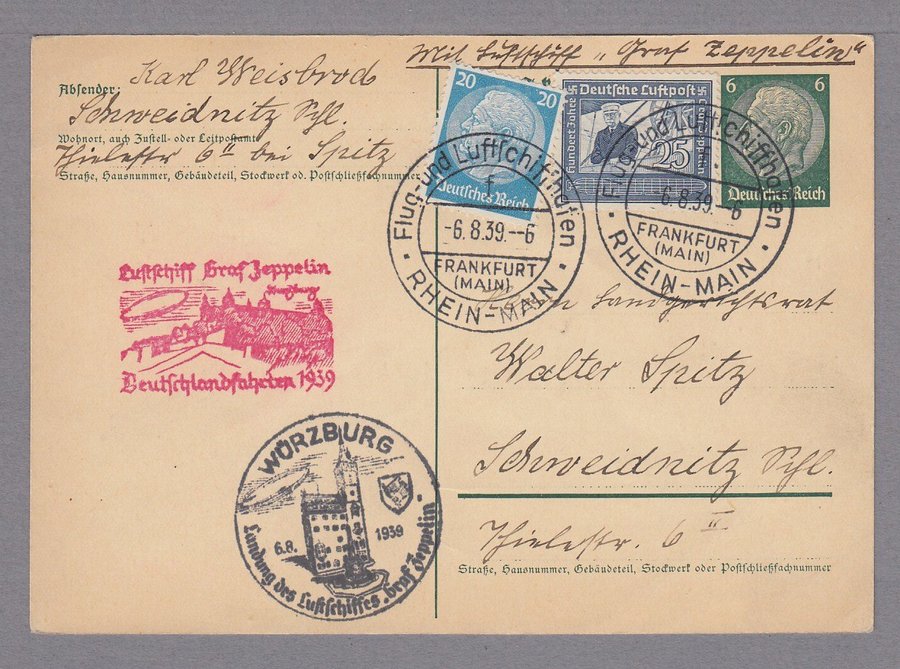 Mit Luftschiff „Graf Zeppelin“
Absender: Karl Weisbrod
Schweidnitz Schl.
Wohnort, auch Zustell- oder Leitpostamt
Thielestr 6II bei Spitz
Straße, Hausnummer, Gebäudeteil, Stockwerk od. Postschließfachnummer
20 20
Deutsches Reich
Deutsche Luftpost
Hundert Jahre
Graf Zeppelin
25
6 6
Deutsches Reich
Flug- und Luftschiffhafen
f
-6.8.39.--6
FRANKFURT
(MAIN)
RHEIN-MAIN
Flug- und Luftschiffhafen
-6.8.39.--6
FRANKFURT
(MAIN)
RHEIN-MAIN
Luftschiff Graf Zeppelin
Würzburg
Deutschlandfahrten 1939
WÜRZBURG
6.8. 1939
Landung des Luftschiffes „Graf Zeppelin“
Landgerichtsrat
Walter Spitz
Schweidnitz Schl.
Thielestr. 6II
Straße, Hausnummer, Gebäudeteil, Stockwerk oder Postschließfachnummer